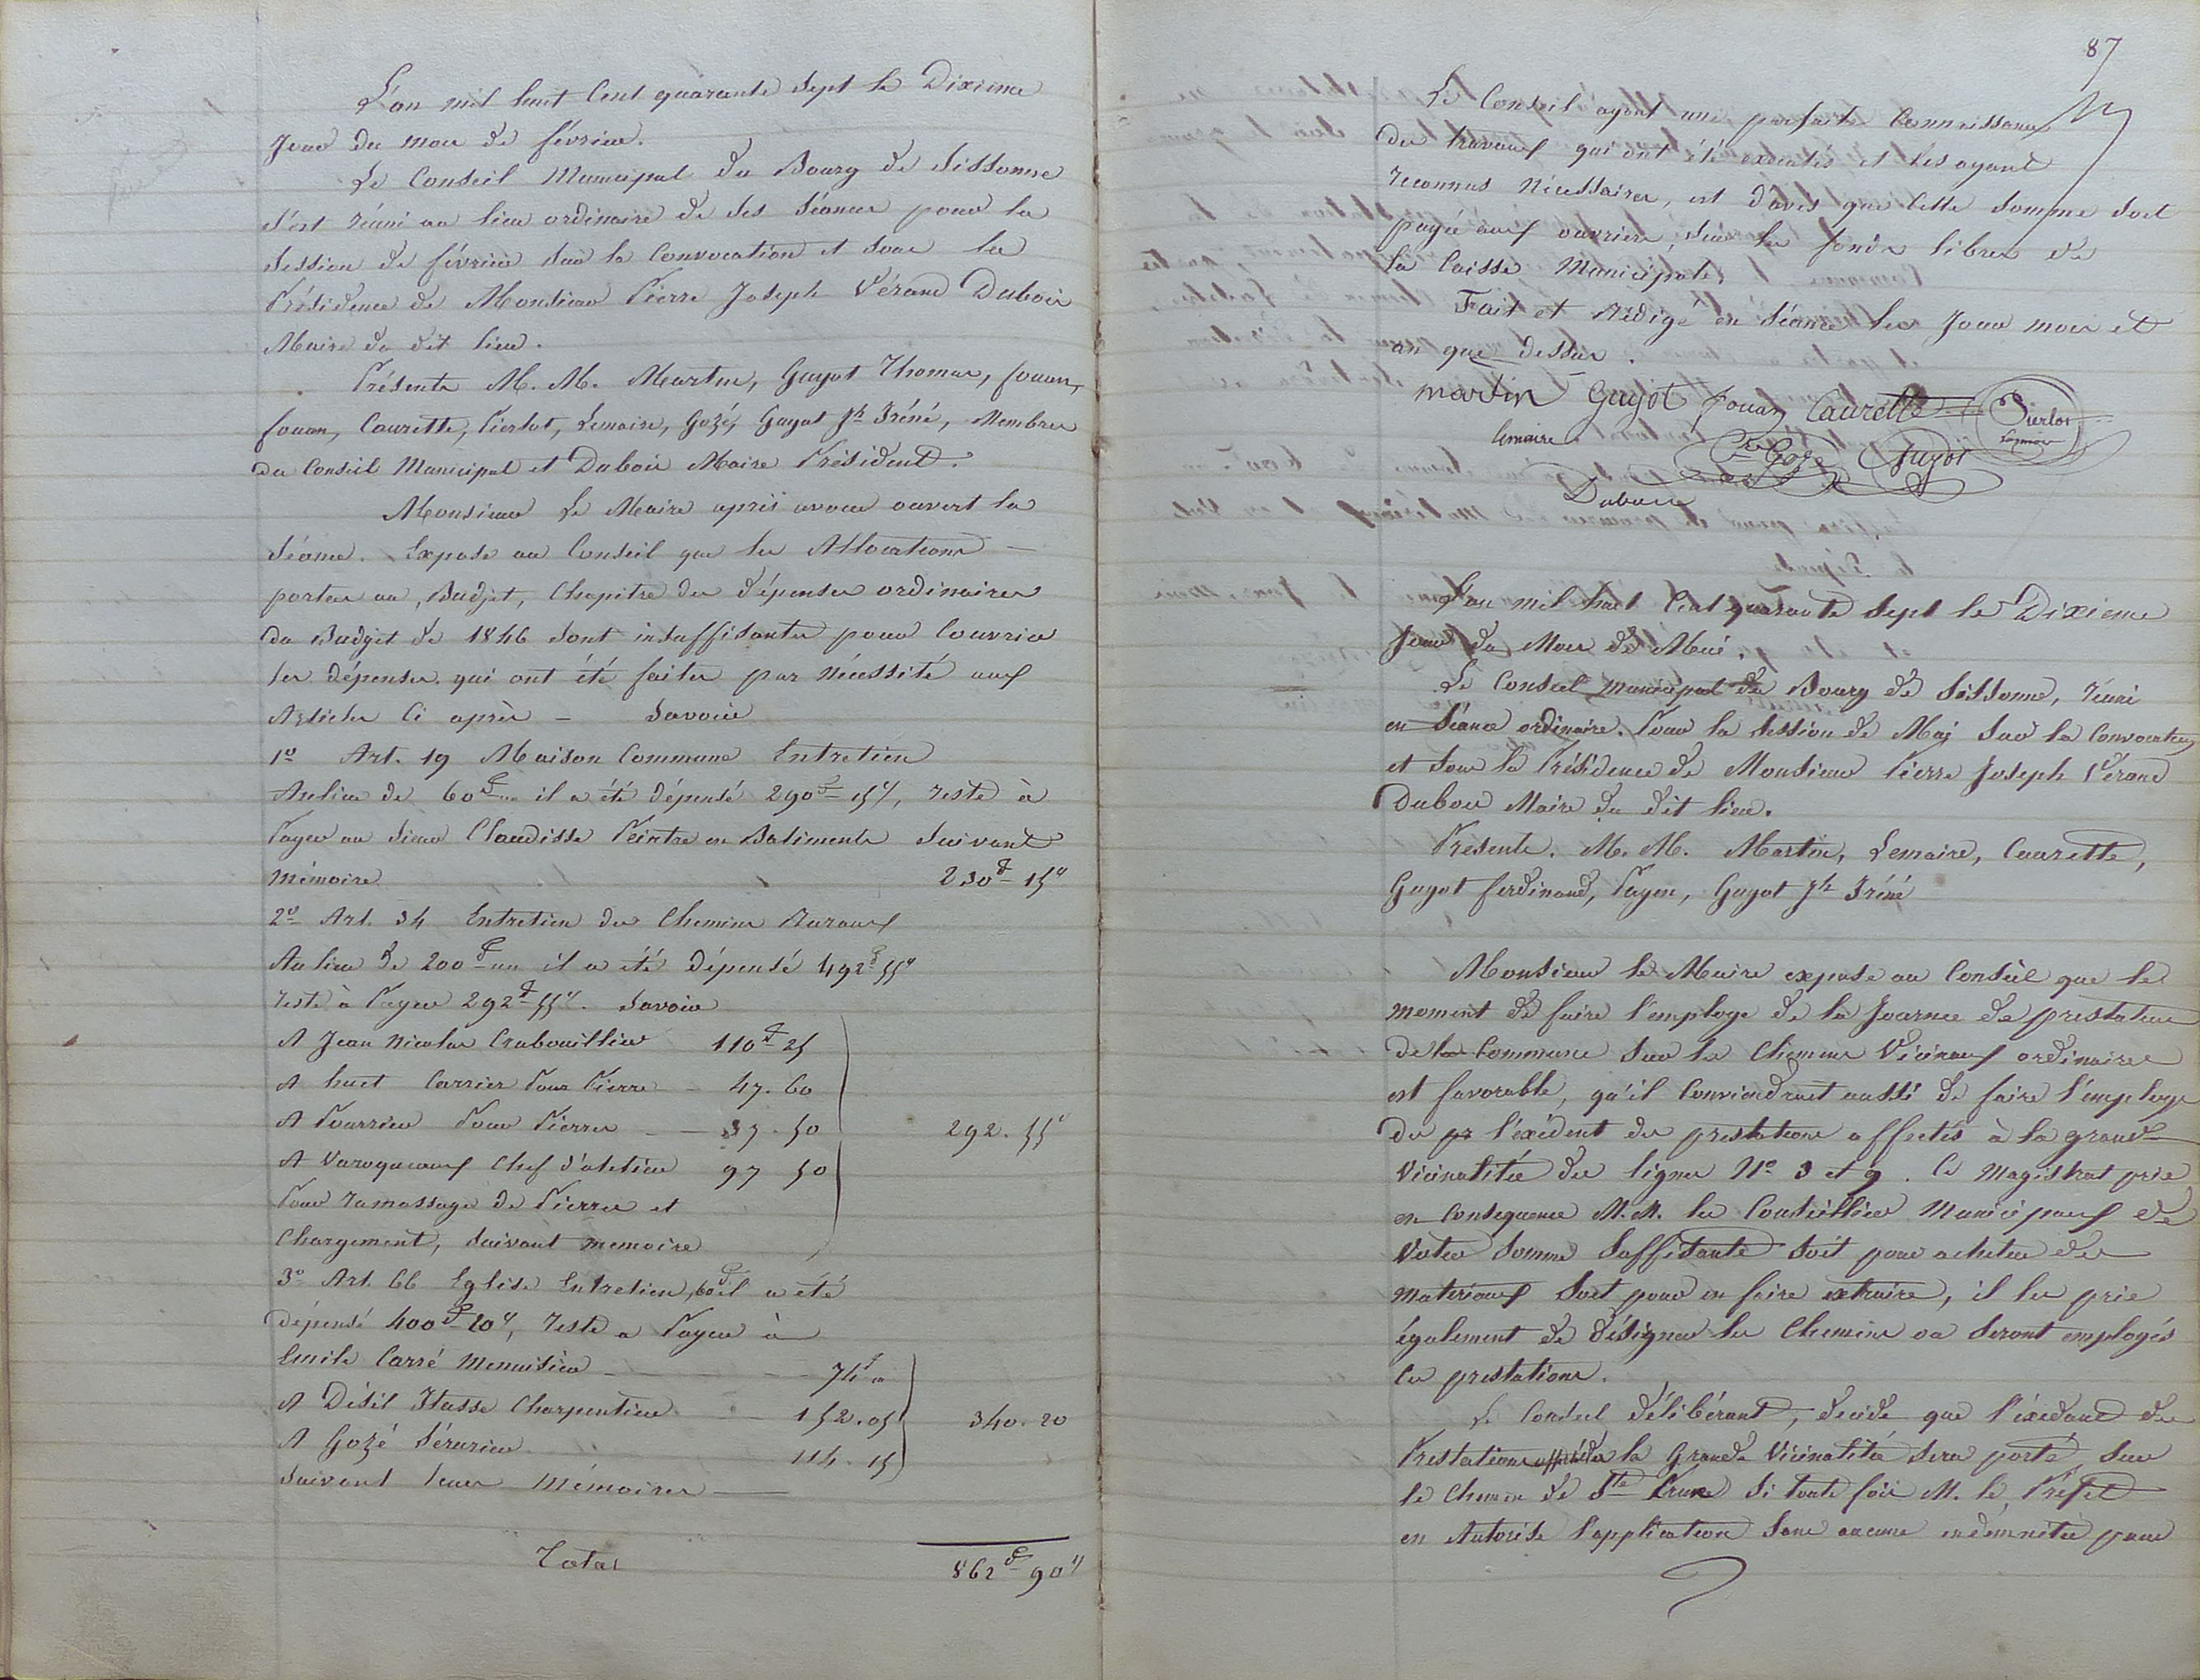 L'an mil huit Cent quarante Sept le Dixieme
Jour du mois de février.
Le Conseil Municipal du Bourg de Sissonne
S'est réuni au lieu ordinaire de ses Séances pour la
Session de février sur la Convocation et sous la
Présidence de Monsieur Pierre Joseph Vérand Dubois
Maire du dit lieu.
Présents M. M. Martin, Guyot Thomas, fouan,
fouan, Caurette, Pierlot, Lemaire, Gozé, Guyot Jh Iréné, Membres
du Conseil Municipal et Dubois Maire Président.
Monsieur Le Maire après avoir ouvert la
Séance. Expose au Conseil que les Allocations —
portées au Budjet, Chapitre des dépenses ordinaires
du Budget de 1846 sont insuffisantes pour Couvrir
les dépenses qui ont été faites par Nécessité aux
Articles Ci après — Savoir
1º Art. 19 Maison Commune Entretien
Au lieu de 60f „ il a été dépensé 290f 15c, reste à
Payer au Sieur Claudisse Peintre en Batiments Suivant
mémoire 230f 15c
2º Art. 34 Entretien des Chemins Ruraux
Au lieu de 200f „ il a été dépensé 492f 55c
reste à Payer 292f 55c. Savoir
A Jean Nicolas Crabouillier 110f 25
A huet Carrier Pour Pierre — 47. 60
A Pourrier Pour Pierres — 37. 50 292. 55c
A Varoqueaux Chef d'atelier 97 50
Pour ramassage de Pierres et
Chargement, Suivant memoire
3º Art. 66 Eglise Entretien, 60f il a été
dépensé 400f 20c, reste a Payer à
Emile Carré Menuisier — 74f „
A Désil Itasse Charpentier — 152. 05 340. 20
A Gozé Sérurier 114. 15
Suivant leurs Mémoires —
Total 862f 90c
87
Le Conseil ayant une parfaite Connaissance
des travaux qui ont été exécutés et les ayant
reconnus Nécessaires, est d'avis que Cette Somme soit
payée aux ouvriers, sur les fonds libres de
la Caisse Municipale,
Fait et Rédigé en Séance les Jour mois et
an que dessus.
Martin Guyot fouan Caurette Pierlot
lemaire Gozé Guyot
Dubois
L'an mil huit Cent quarante Sept le Dixieme
Jour du Mois de Mai.
Le Conseil municipal du Bourg de Sissonne, réuni
en Séance ordinaire. Pour la Session de Mai Sur la Convocation
et Sous la Présidence de Monsieur Pierre Joseph Vérand
Dubois Maire du dit lieu.
Présents. M. M. Martin, Lemaire, Caurette,
Guyot ferdinand, Payen, Guyot Jh Iréné
Monsieur le Maire expose au Conseil que le
moment de faire l'employe de la Journée de prestations
de la Commune Sur les Chemins Vicinaux ordinaires
est favorable, qu'il Conviendrait aussi de faire l'employe
du pr l'éxédent des prestations affectés à la grande
Vicinalitée des lignes Nº 3 et 9. Ce Magistrat prie
en Consequence M. M. les Conseillers Municipaux de
Voter Somme Suffisante soit pour acheter des
materiaux Soit pour en faire extraire, il les prie
également de désigner les Chemins ou Seront employés
Ces prestations.
Le Conseil délibérant, decide que l'éxédant des
Prestations affectées la Grande Vicinalitée Sera porté Sur
le Chemin de Ste Preuve Si toute fois M. le Préfet
en Autorise l'application Sans aucune indemnitée pour